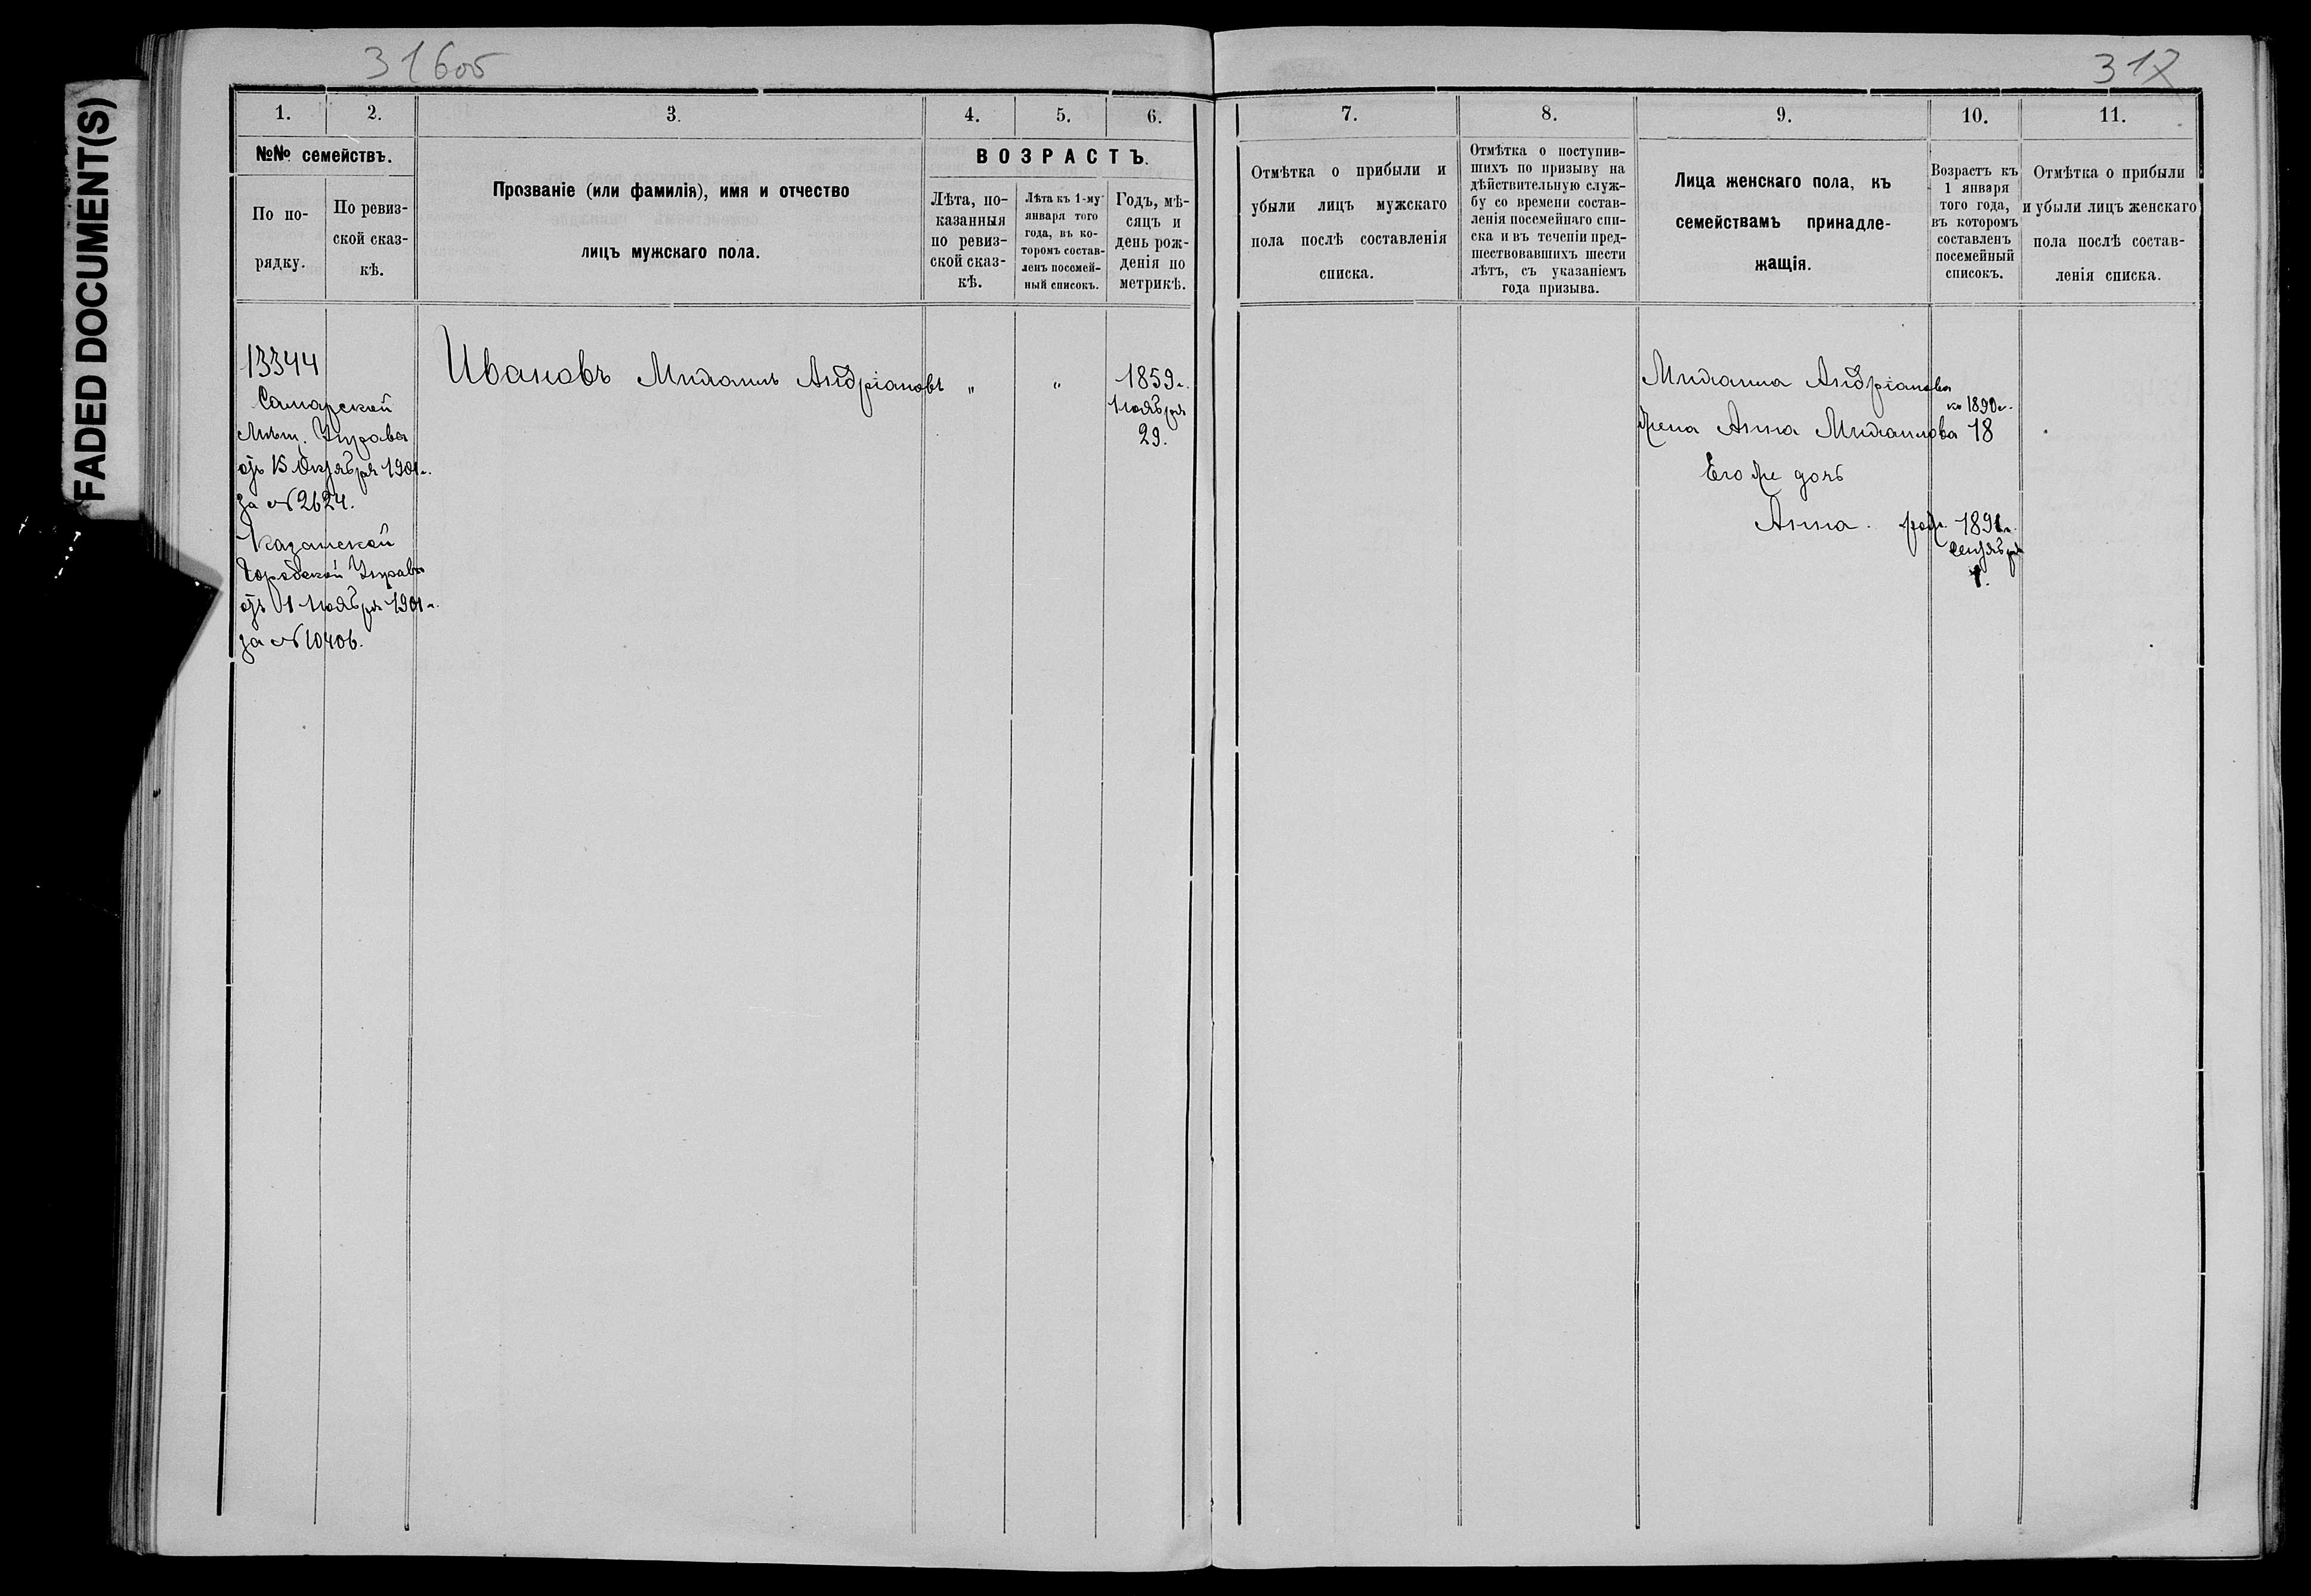 FADED DOCUMENT(S)
316об
317
1.
2.
3.
4.
5.
6.
№№ семействъ.
По по-
рядку.
По ревиз-
ской сказ-
кѣ.
Прозваніе (или фамилія), имя и отчество
лицъ мужскаго пола.
ВОЗРАСТЪ.
Лѣта, по-
казанныя
по ревиз-
ской сказ-
кѣ.
Лѣта къ 1-му
января того
года, въ ко-
торомъ состав-
ленъ посемей-
ный списокъ.
Годъ, мѣ-
сяцъ и
день рож-
денія по
метрикѣ.
13344
Самарской
Мѣщ. Управы
отъ 15 Октября 1901 г.
за № 2624.
Казанской
Городской Управы
отъ 1 Ноября 1901 г.
за № 10406.
Ивановъ Михаилъ Андріановъ
"
"
1859 г.
Ноября
29.
7.
8.
9.
10.
11.
Отмѣтка о прибыли и
убыли лицъ мужскаго
пола послѣ составленія
списка.
Отмѣтка о поступив-
шихъ по призыву на
дѣйствительную служ-
бу со времени состав-
ленія посемейнаго спи-
ска и въ теченіи пред-
шествовавшихъ шести
лѣтъ, съ указаніемъ
года призыва.
Лица женскаго пола, къ
семействамъ принадле-
жащія.
Возрастъ къ
1 января
того года,
въ которомъ
составленъ
посемейный
списокъ.
Отмѣтка о прибыли
и убыли лицъ женскаго
пола послѣ состав-
ленія списка.
Михаила Андріанова
къ 1890 г.
жена Анна Михаилова 18
Его же дочь
Анна. род. 1891 г.
Сентября
1.